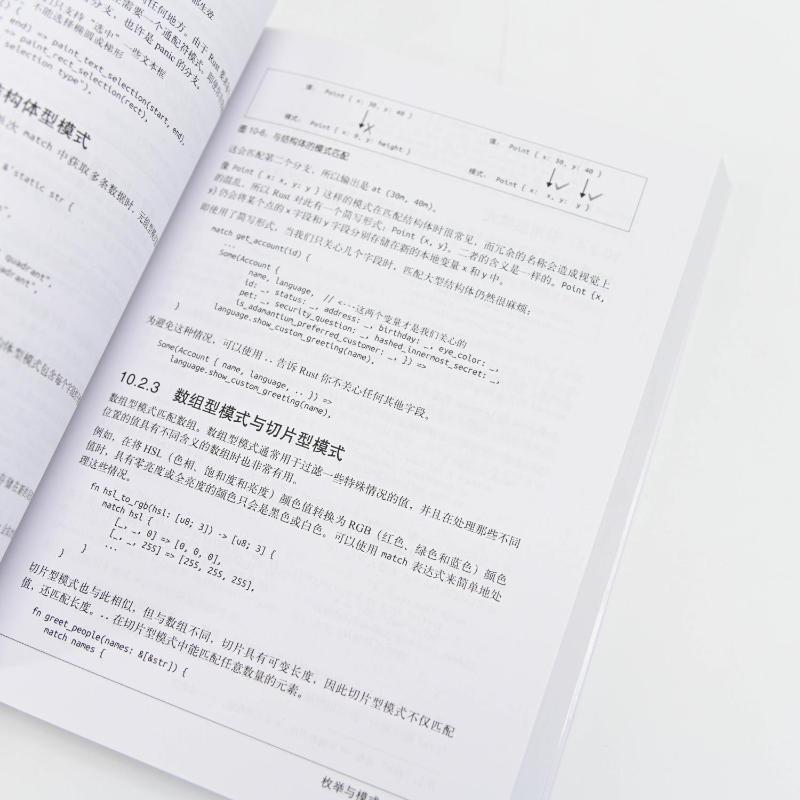 都生效
任何地方。由于 Rust 要
需要一个通配符模式，即使
分支，也许是 panic 的分支。
只支持“选中”一些文本框
不能选择椭圆或梯形
end) => paint_text_selection(start, end),
=> paint_rect_selection(rect),
selection type"),
结构体型模式
次 match 中获取多条数据时，元组型模式
&'static str {
quadrant",
adrant",
体型模式包含每个字段
值： Point { x: 30, y: 40 }
模式： Point { x: 0, y: height }
值： Point { x: 30, y: 40 }
模式： Point { x: x, y: y }
图 10-6：与结构体的模式匹配
这会匹配第二个分支，所以输出是 at (30m, 40m)。
像 Point { x: x, y: y } 这样的模式在匹配结构体时很常见，而冗余的名称会造成视觉上
的混乱，所以 Rust 对此有一个简写形式：Point {x, y}。二者的含义是一样的。Point {x,
y} 仍会将某个点的 x 字段和 y 字段分别存储在新的本地变量 x 和 y 中。
即使用了简写形式，当我们只关心几个字段时，匹配大型结构体仍然很麻烦：
match get_account(id) {
...
Some(Account {
name, language, // <---这两个变量才是我们关心的
id: _, status: _, address: _, birthday: _, eye_color: _,
pet: _, security_question: _, hashed_innermost_secret: _,
is_adamantium_preferred_customer: _, }) =>
language.show_custom_greeting(name),
}
为避免这种情况，可以使用 .. 告诉 Rust 你不关心任何其他字段。
Some(Account { name, language, .. }) =>
language.show_custom_greeting(name),
10.2.3 数组型模式与切片型模式
数组型模式匹配数组。数组型模式通常用于过滤一些特殊情况的值，并且在处理那些不同
位置的值具有不同含义的数组时也非常有用。
例如，在将 HSL（色相、饱和度和亮度）颜色值转换为 RGB（红色、绿色和蓝色）颜色
值时，具有零亮度或全亮度的颜色只会是黑色或白色。可以使用 match 表达式来简单地处
理这些情况。
fn hsl_to_rgb(hsl: [u8; 3]) -> [u8; 3] {
match hsl {
[_, _, 0] => [0, 0, 0],
[_, _, 255] => [255, 255, 255],
...
}
}
切片型模式也与此相似，但与数组不同，切片具有可变长度，因此切片型模式不仅匹配
值，还匹配长度。.. 在切片型模式中能匹配任意数量的元素。
fn greet_people(names: &[&str]) {
match names {
枚举与模式